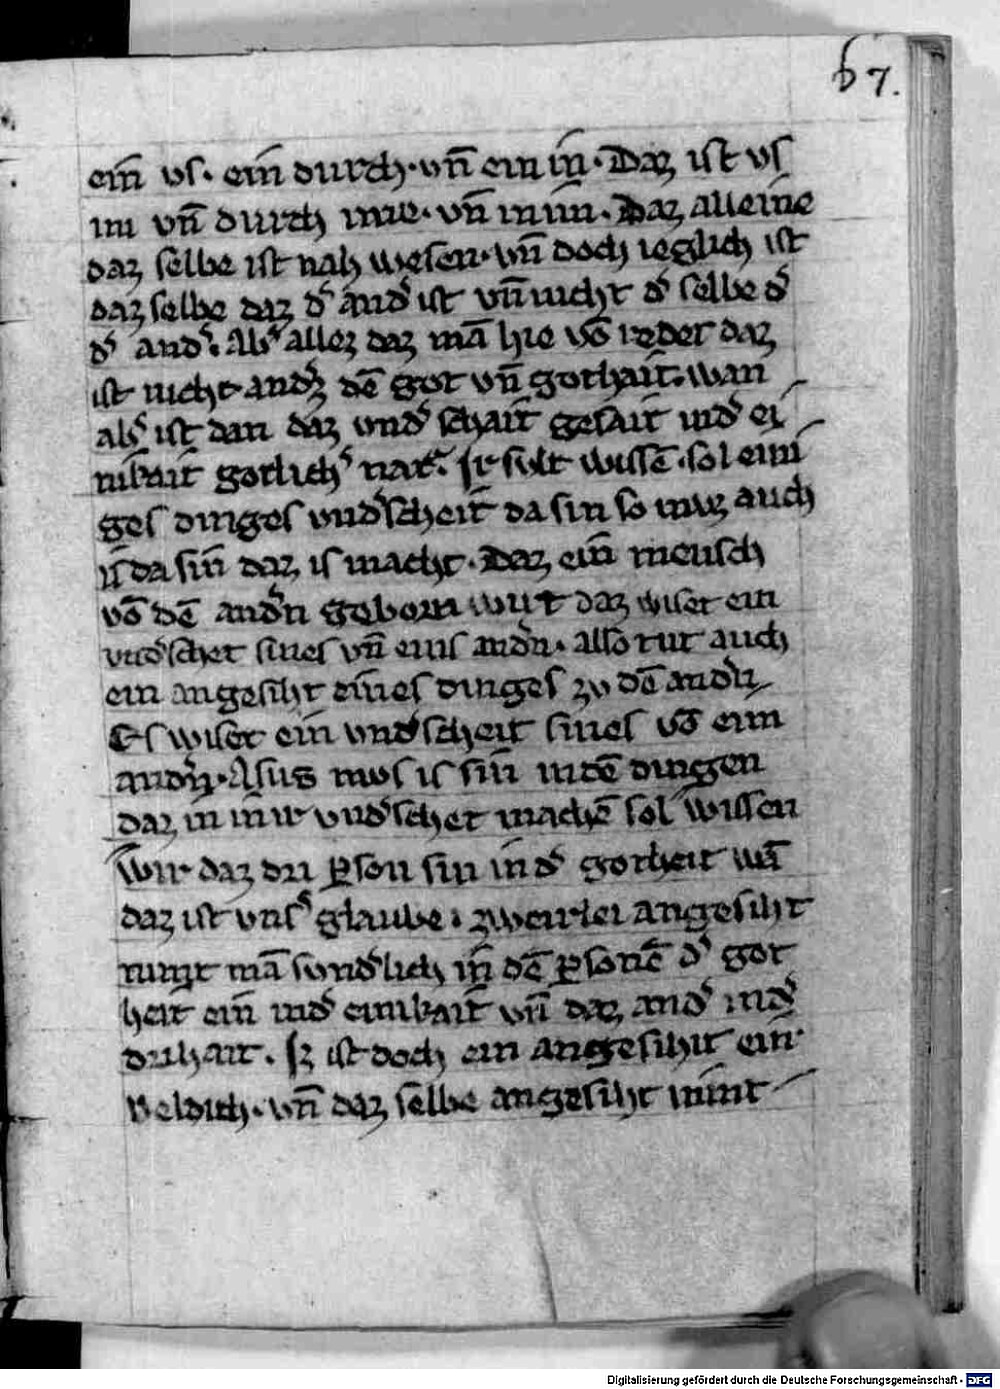 67.
ein̄ us. ein̄ durch. un̄ ein in̄. Daz ist us
im un̄ durch inne. un̄ in im. Daz alleine
daz selbe ist nah wesen. un̄ doch ieglich ist
daz selbe daz dˀ andˀ ist un̄ nicht dˀ selbe dˀ
dˀ andˀ. Alsˀ allez daz mā hie vō redet daz
ist nicht andˀz dē got un̄ gothait. wan
alsˀ ist dan daz undˀschait gesait in dˀ ei
nikait gotlichˀ natˀ. Ir sult wissē. sol eini
ges dinges undˀscheit da sin so muz auch
da sin daz is macht. Daz ein̄ mensch
vō dē andˀn geborn wirt daz wiset ein
undˀschet sines un̄ eins andˀn. also tut auch
ein angesiht eines dinges zu dē andˀn
Es wiset ein̄ undˀscheit sines vō eim
andˀn. Asus mos is sin in dē dingen
daz in im̄ undˀschet machē sol wissen
Wir daz dri ꝑson sin in dˀ gotheit wā
daz ist unsˀ glaube. zweirlei angesiht
nimt mā sundˀlich in̄ dē ꝑsonē dˀ got
heit ein̄ in dˀ einikait un̄ daz andˀ in dˀ
drihait. Iz ist doch ein angesiht ein
veldich. un̄ daz selbe angesiht nimt
Digitalisierung gefördert durch die Deutsche Forschungsgemeinschaft - DFG